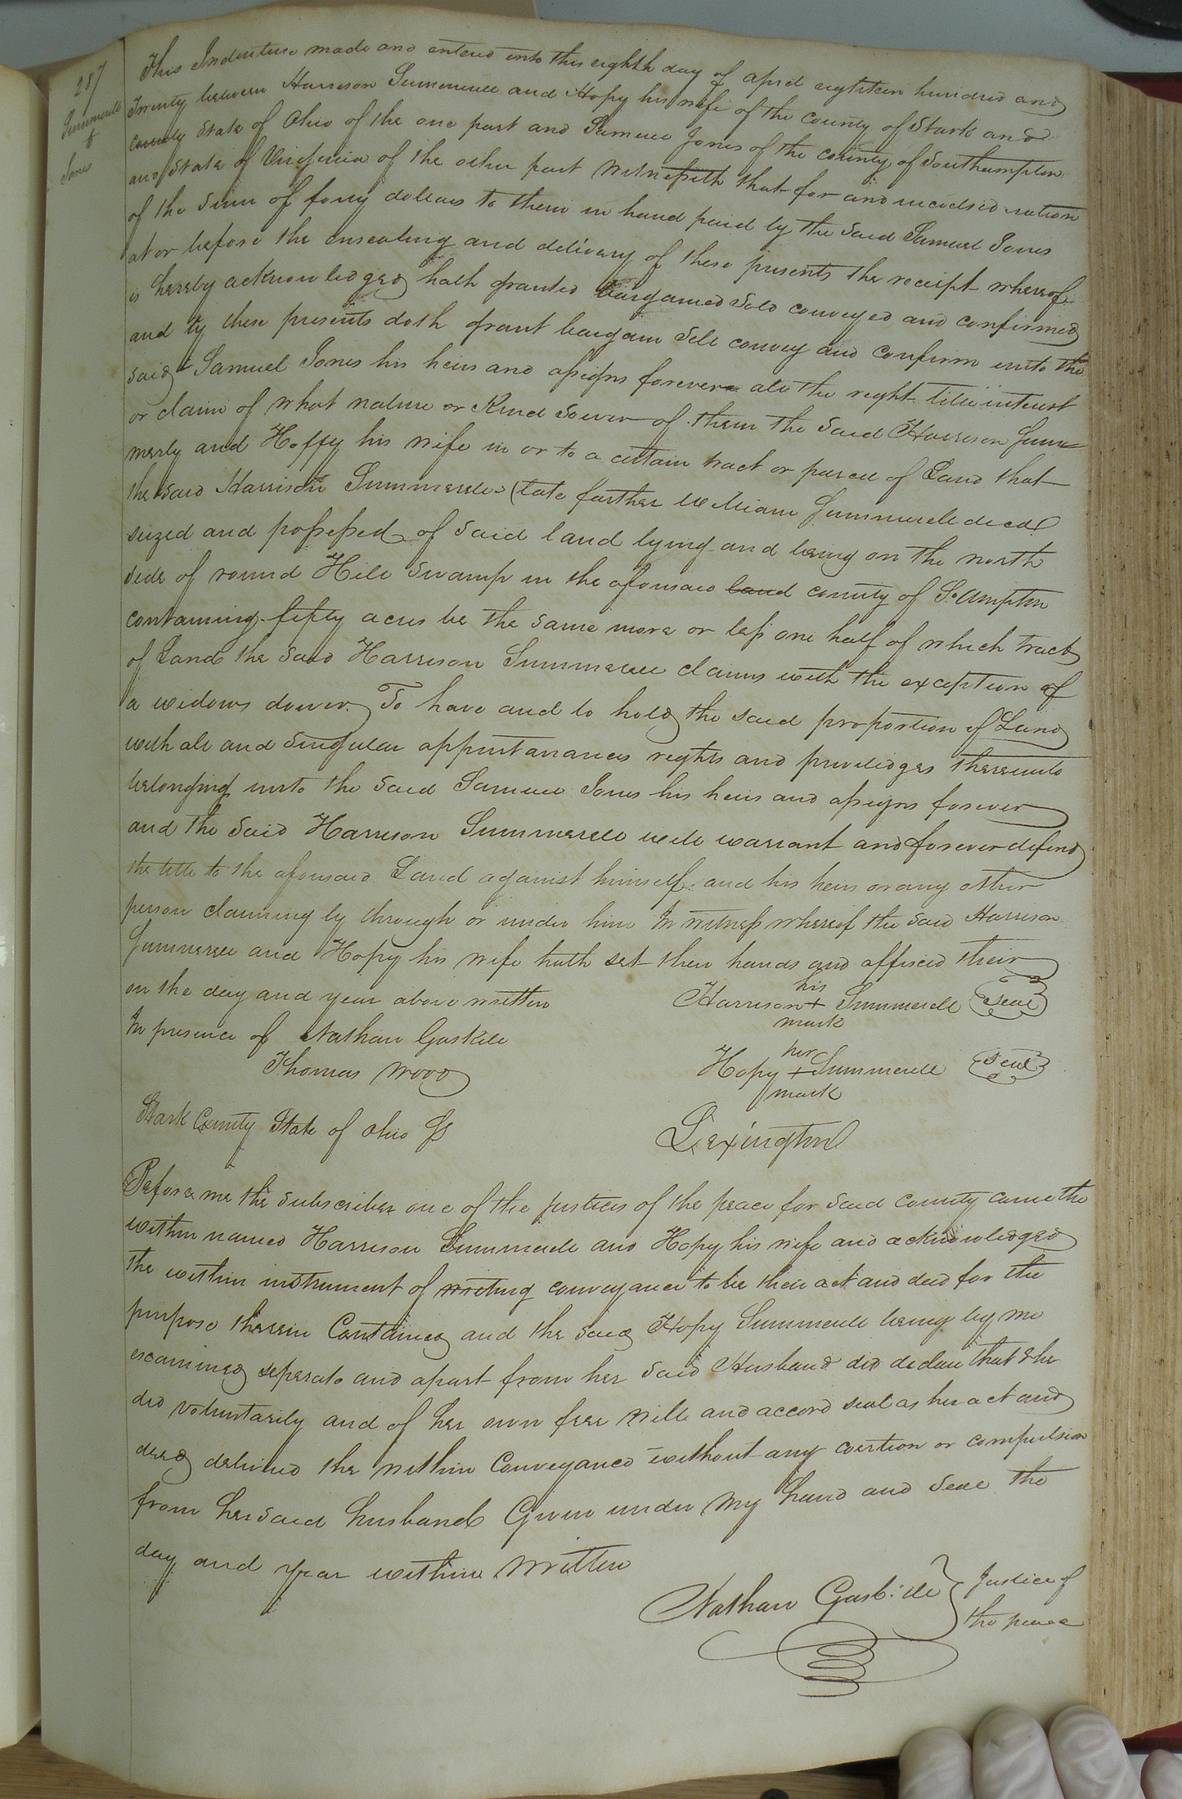 287
Summerell
&
Jones
This Indenture made and entered into this eighth day of april eighteen hundred and
Twenty between Harrison Summerell and Hopy his wife of the County of Stark and
County State of Ohio of the one part and Samuel Jones of the county of Southampton
and State of Virginia of the other part Witnesseth that for and in
of the Sum of forty dollars to them in hand paid by the said Samuel Jones
at or before the ensealing and delivery of these presents the receipt whereof
is hereby acknowledged hath granted bargained Sold conveyed and confirmed
and by these presents doth grant bargain Sell convey and confirm unto the
said Samuel Jones his heirs and assigns forever all the right title interest
or claim of what nature or Kind Soever of them the Said Harrison Summ-
merly and Hoppy his wife in or to a certain tract or parcel of Land that
the said Harrison Summerells (late farther William Summerell decd
seized and possessed of Said land lying and being on the north
side of round Hill Swamp in the aforesaid land county of S.Ampton
containing fifty acres be the same more or less one half of which tract
of Land the Said Harrison Summerell claims with the exception of
a widows dower. To have and to hold the said proportion of Land
with all and Singular appurtanances rights and priviledges thereunto
belonging unto the Said Samuel Jones his heirs and assigns forever
and the Said Harrison Summerell will warrant and forever defend
the title to the aforesaid Land against himself and his heirs or any other
person claiming by through or under him In witness whereof the said Harrison
Summerell and Hopy his wife hath set their hands and affixed their
on the day and year above written
Harrison his + mark Summerell (Seal)
In presence of Nathan Gaskill
Thomas Wood
Hopy her + mark Summerell (Seal)
Stark County State of Ohio Ss
Lexington
Before me the subscriber one of the justices of the peace for Said county came the
within named Harrison Summerell and Hopy his wife and acknowledged
the within instrument of writing conveyance to be their act and deed for the
purpose therein Contained and the said Hopy Summerell being by me
examined seperate and apart from her Said Husband did declare that she
did voluntarily and of her own free will and accord seal as her act and
deed delivered the within Conveyance without any coertion or compulsion
from her said husband Given under my hand and Seal the
day and year within written
Nathan Gaskill } Justice of
the peace